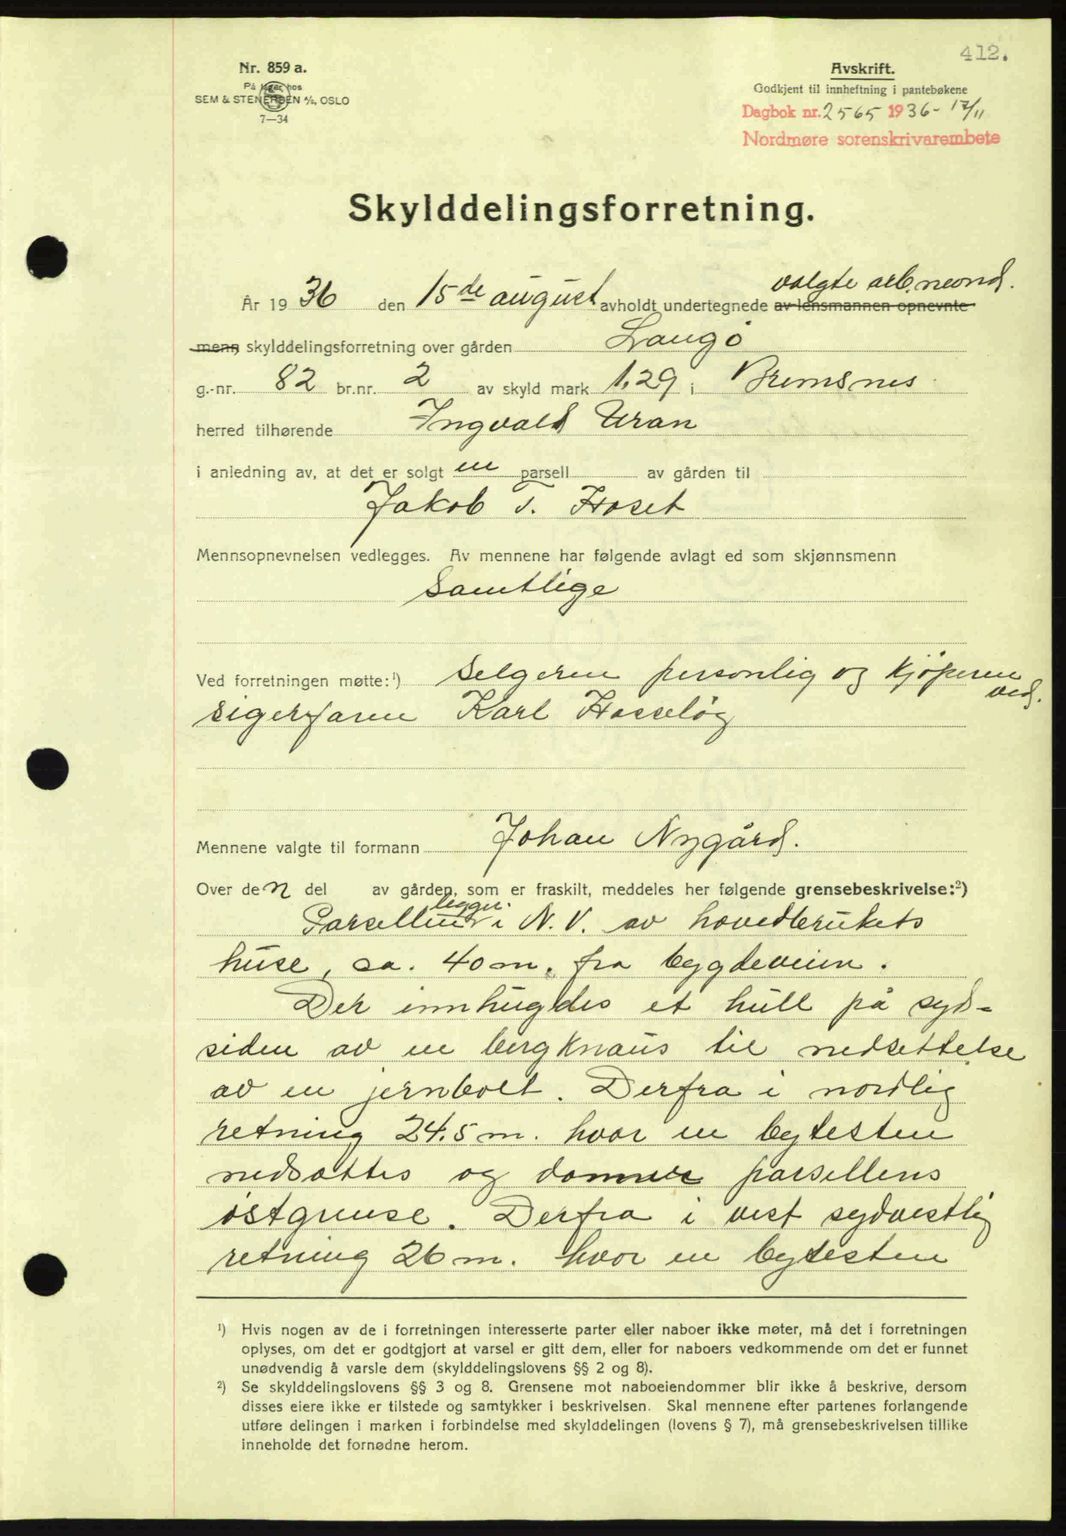 412.
Nr. 859 a.
På lager hos
SEM & STENERSEN A/S, OSLO
7—34
Avskrift.
Godkjent til innheftning i pantebøkene
Dagbok nr. 2565 1936 - 17/11
Nordmøre sorenskrivarembete
Skylddelingsforretning.
valgte arb.neond.
År 1936 den 15de august avholdt undertegnede av lensmannen opnevnte
menn skylddelingsforretning over gården Langö
g.-nr. 82 br.nr. 2 av skyld mark 1,29 i Bremsnes
herred tilhørende Ingvald Uran
i anledning av, at det er solgt en parsell av gården til
Jakob T. Hoset
Mennsopnevnelsen vedlegges. Av mennene har følgende avlagt ed som skjønnsmenn
Samtlige
Ved forretningen møtte:¹) Selgeren personlig og kjöperen
ved.
Karl
Mennene valgte til formann Johan Nygård.
Over den del av gården, som er fraskilt, meddeles her følgende grensebeskrivelse:²)
Parsellen ligger i N.V. av hovedbrukets
huse, ca. 40 m. fra bygdeveien.
Der innhugdes et hull på syd-
siden av en bergknaus til nedsettelse
av en jernbolt. Derfra i nordlig
retning 24.5 m. hvor en bytesten
nedsattes og danner parsellens
östgrense. Derfra i vest sydvestlig
retning 26 m. hvor en bytesten
¹) Hvis nogen av de i forretningen interesserte parter eller naboer ikke møter, må det i forretningen
oplyses, om det er godtgjort at varsel er gitt dem, eller for naboers vedkommende om det er funnet
unødvendig å varsle dem (skylddelingslovens §§ 2 og 8).
²) Se skylddelingslovens §§ 3 og 8. Grensene mot naboeiendommer blir ikke å beskrive, dersom
disses eiere ikke er tilstede og samtykker i beskrivelsen. Skal mennene efter partenes forlangende
utføre delingen i marken i forbindelse med skylddelingen (lovens § 7), må grensebeskrivelsen tillike
inneholde det fornødne herom.